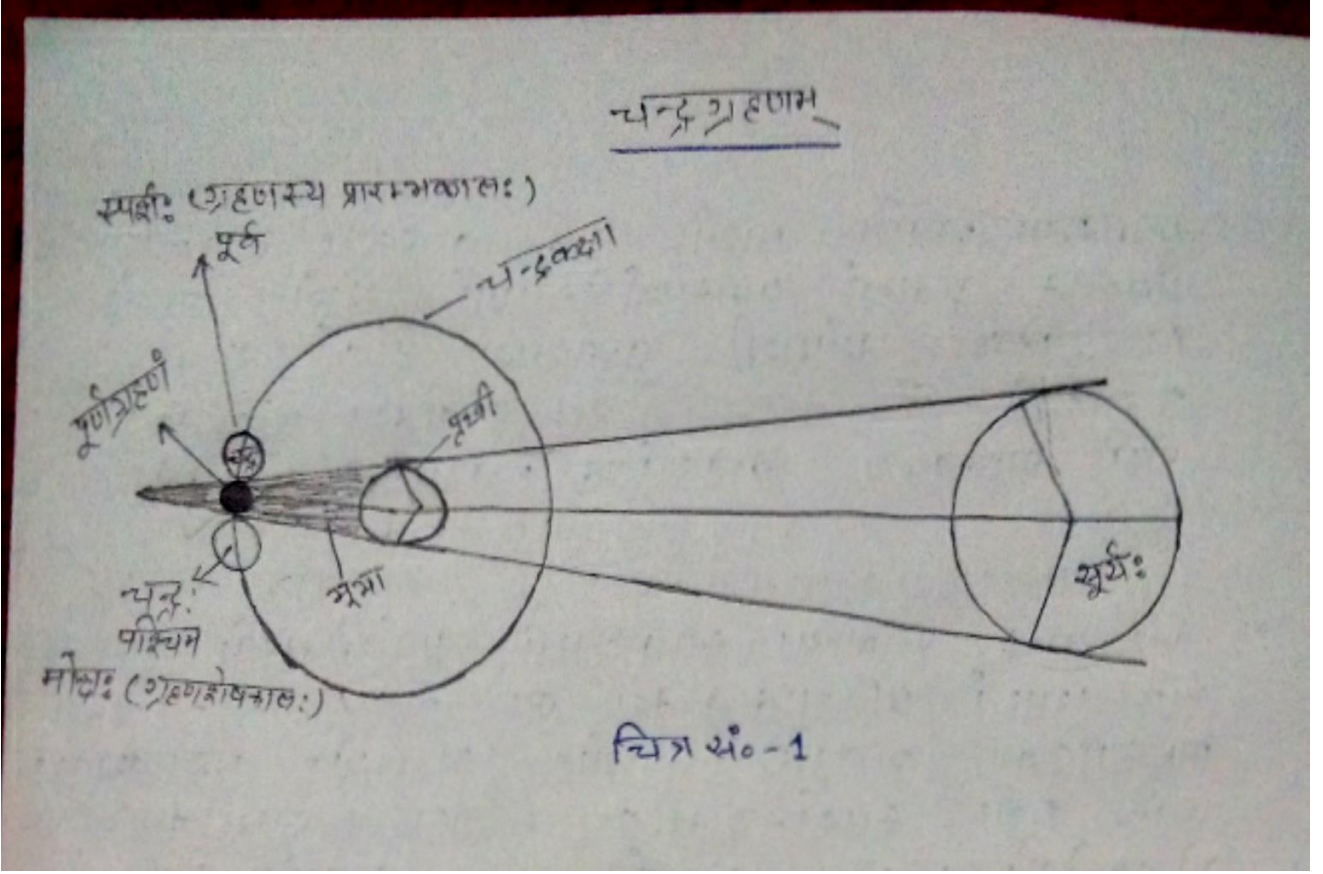 चन्द्रग्रहणम्
स्पर्शः (ग्रहणस्य प्रारम्भकालः)
पूर्व
चन्द्रकक्षा
पूर्णग्रहणं
पृथ्वी
चन्द्र
सूर्यः
भूभा
चन्द्रः
पश्चिम
मोक्षः (ग्रहणशेषकालः)
चित्र सं०-1